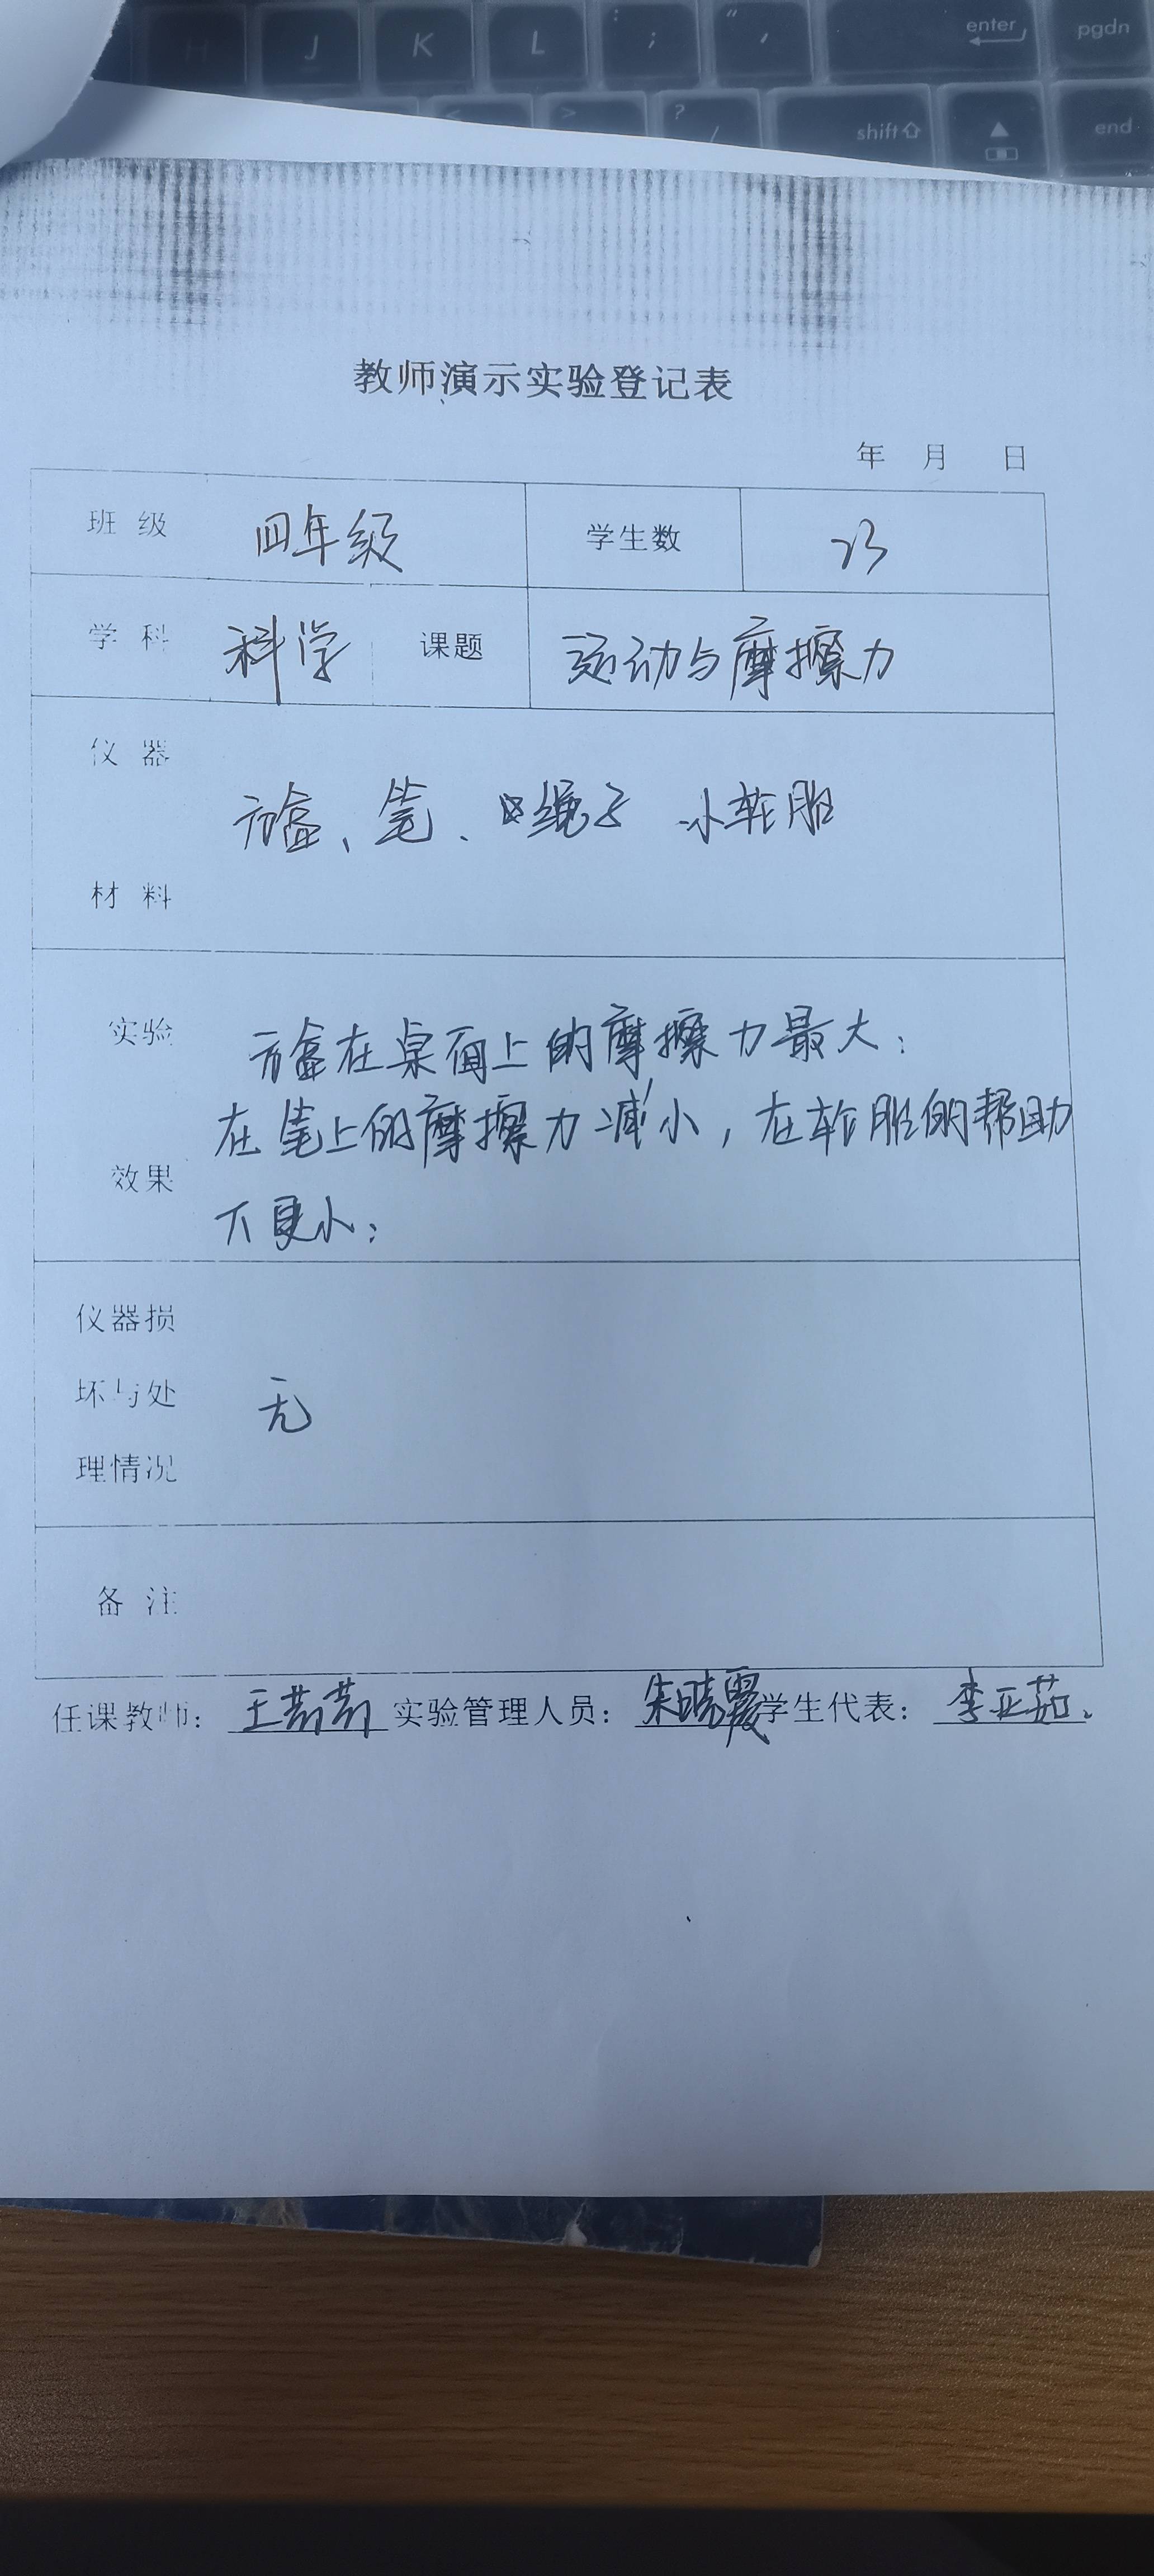 H J K L : ; " ' enter pgdn
< > ? / shift end
教师演示实验登记表
年 月 日
班 级 四年级 学生数 23
学 科 科学 课题 运动与摩擦力
仪 器
方盒、笔、绳子 小轮胎
材 料
实验 方盒在桌面上的摩擦力最大;
在笔上的摩擦力减小,在轮胎的帮助
效果
下更小;
仪器损
坏与处 无
理情况
备 注
任课教师: 王芳芳 实验管理人员: 朱晓霞 学生代表: 李亚茹.